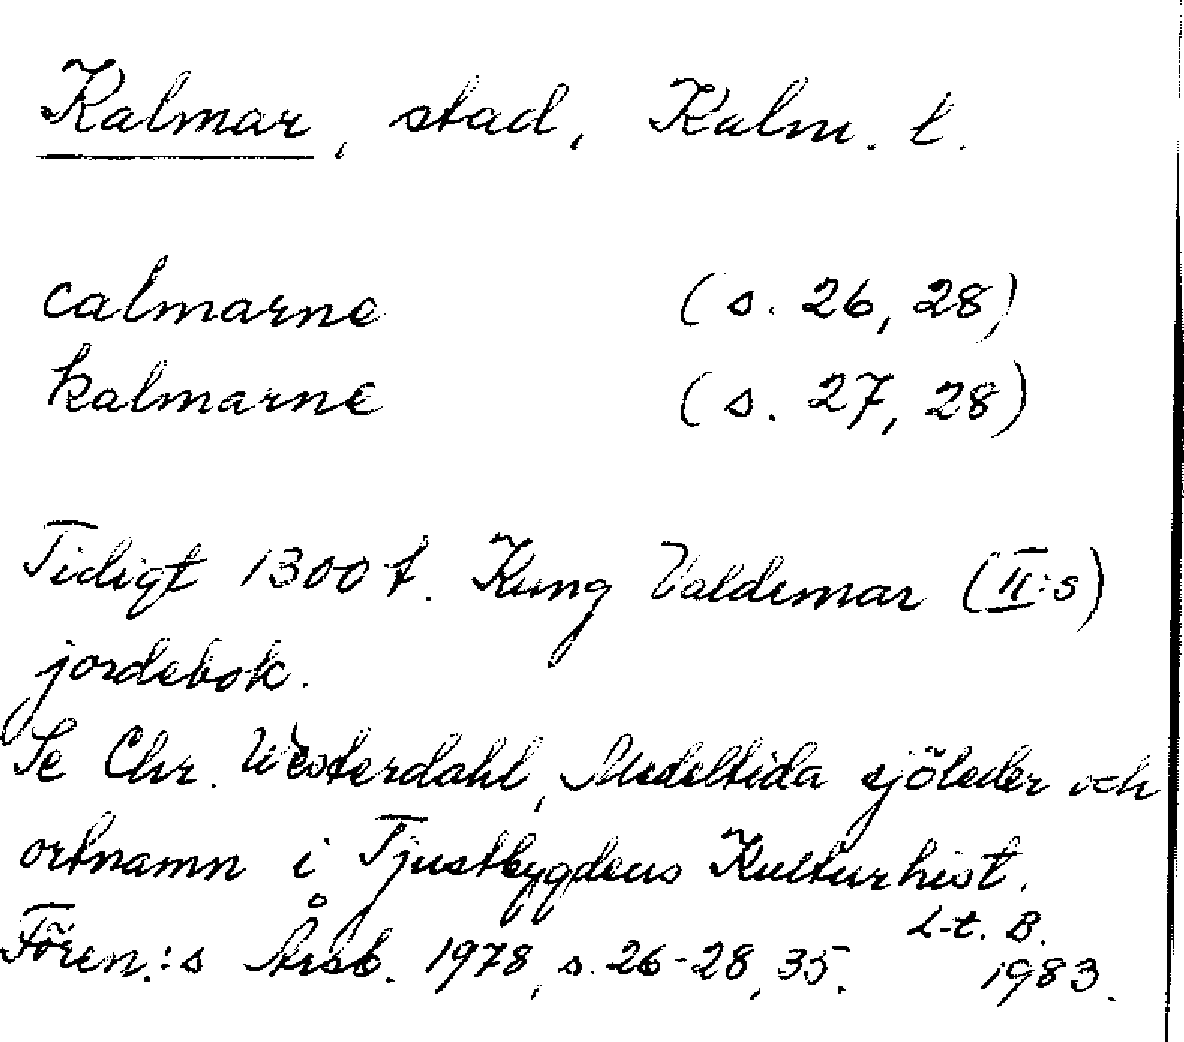 Kalmar, stad, Kalm. l.
calmarne (s. 26, 28)
kalmarne (s. 27, 28)
Tidigt 1300 t. Kung Valdemar (II:s)
jordebok.
Se Chr. Westerdahl, Medeltida sjöleder och
ortnamn i Tjustbygdens Kulturhist.
Fören.:s Årsb. 1978, s. 26-28, 35.
L-t. B.
1983.